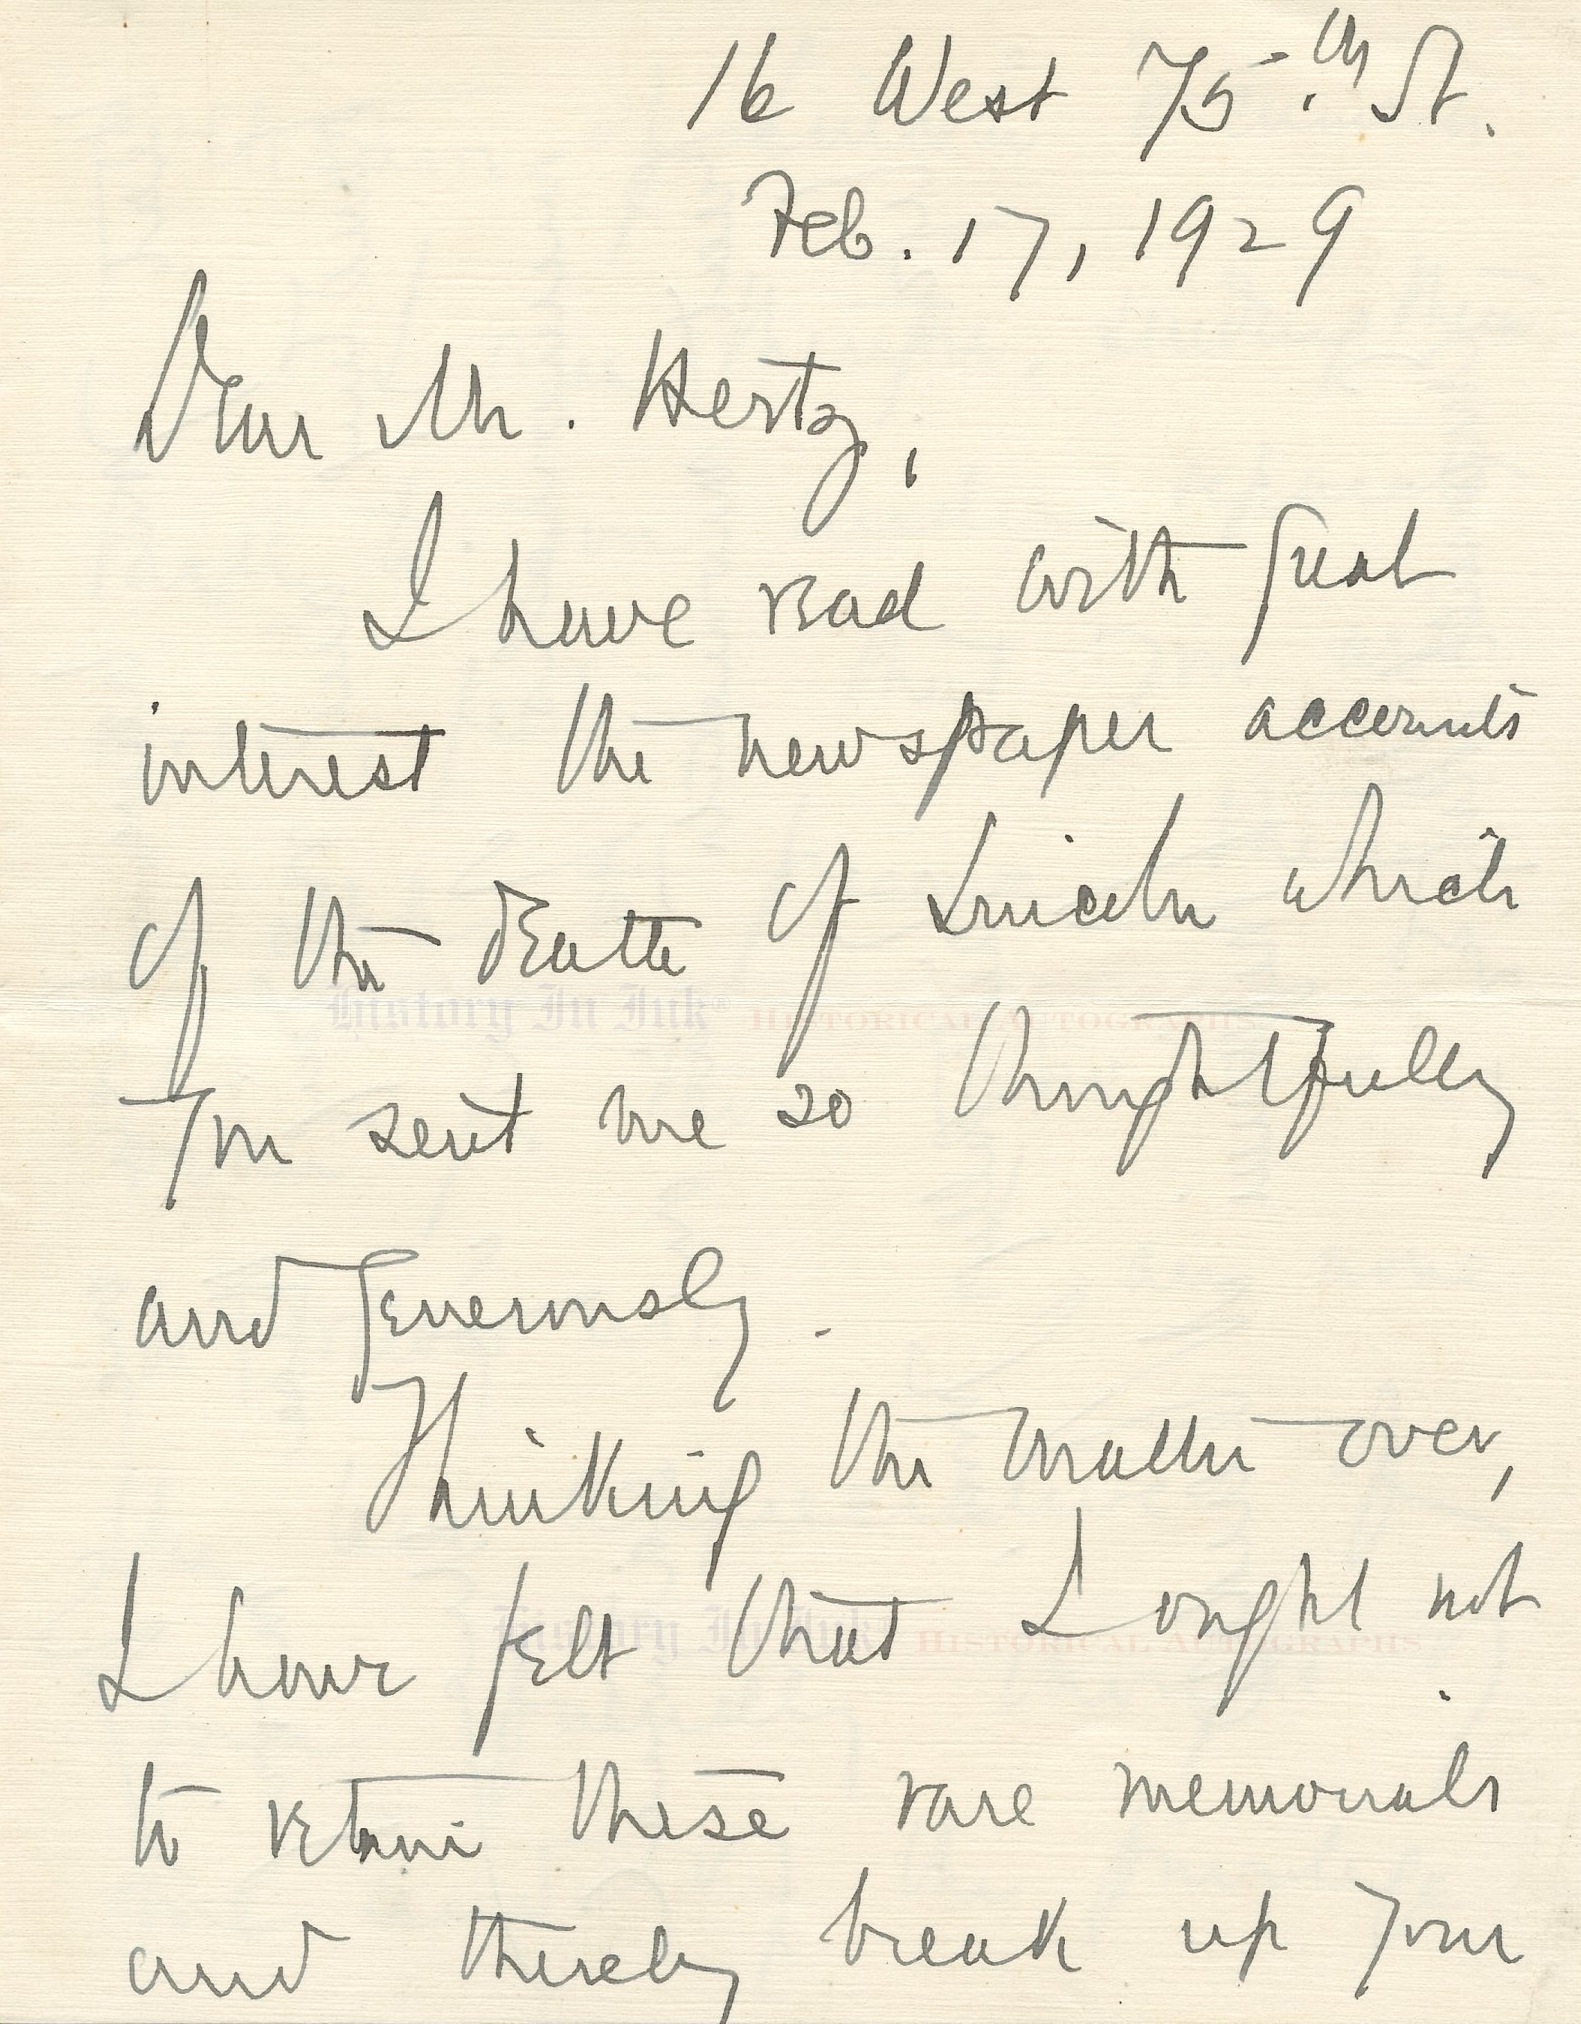 16 West 75th St.
Feb. 17, 1929
Dear Mr. Hertz,
I have read with great
interest the newspaper accounts
of the death of Lincoln which
you sent me so thoughtfully
History In Ink® HISTORICAL AUTOGRAPHS
and generously.
Thinking the matter over,
I have felt that I ought not
History In Ink® HISTORICAL AUTOGRAPHS
to retain these rare memorials
and thereby break up your